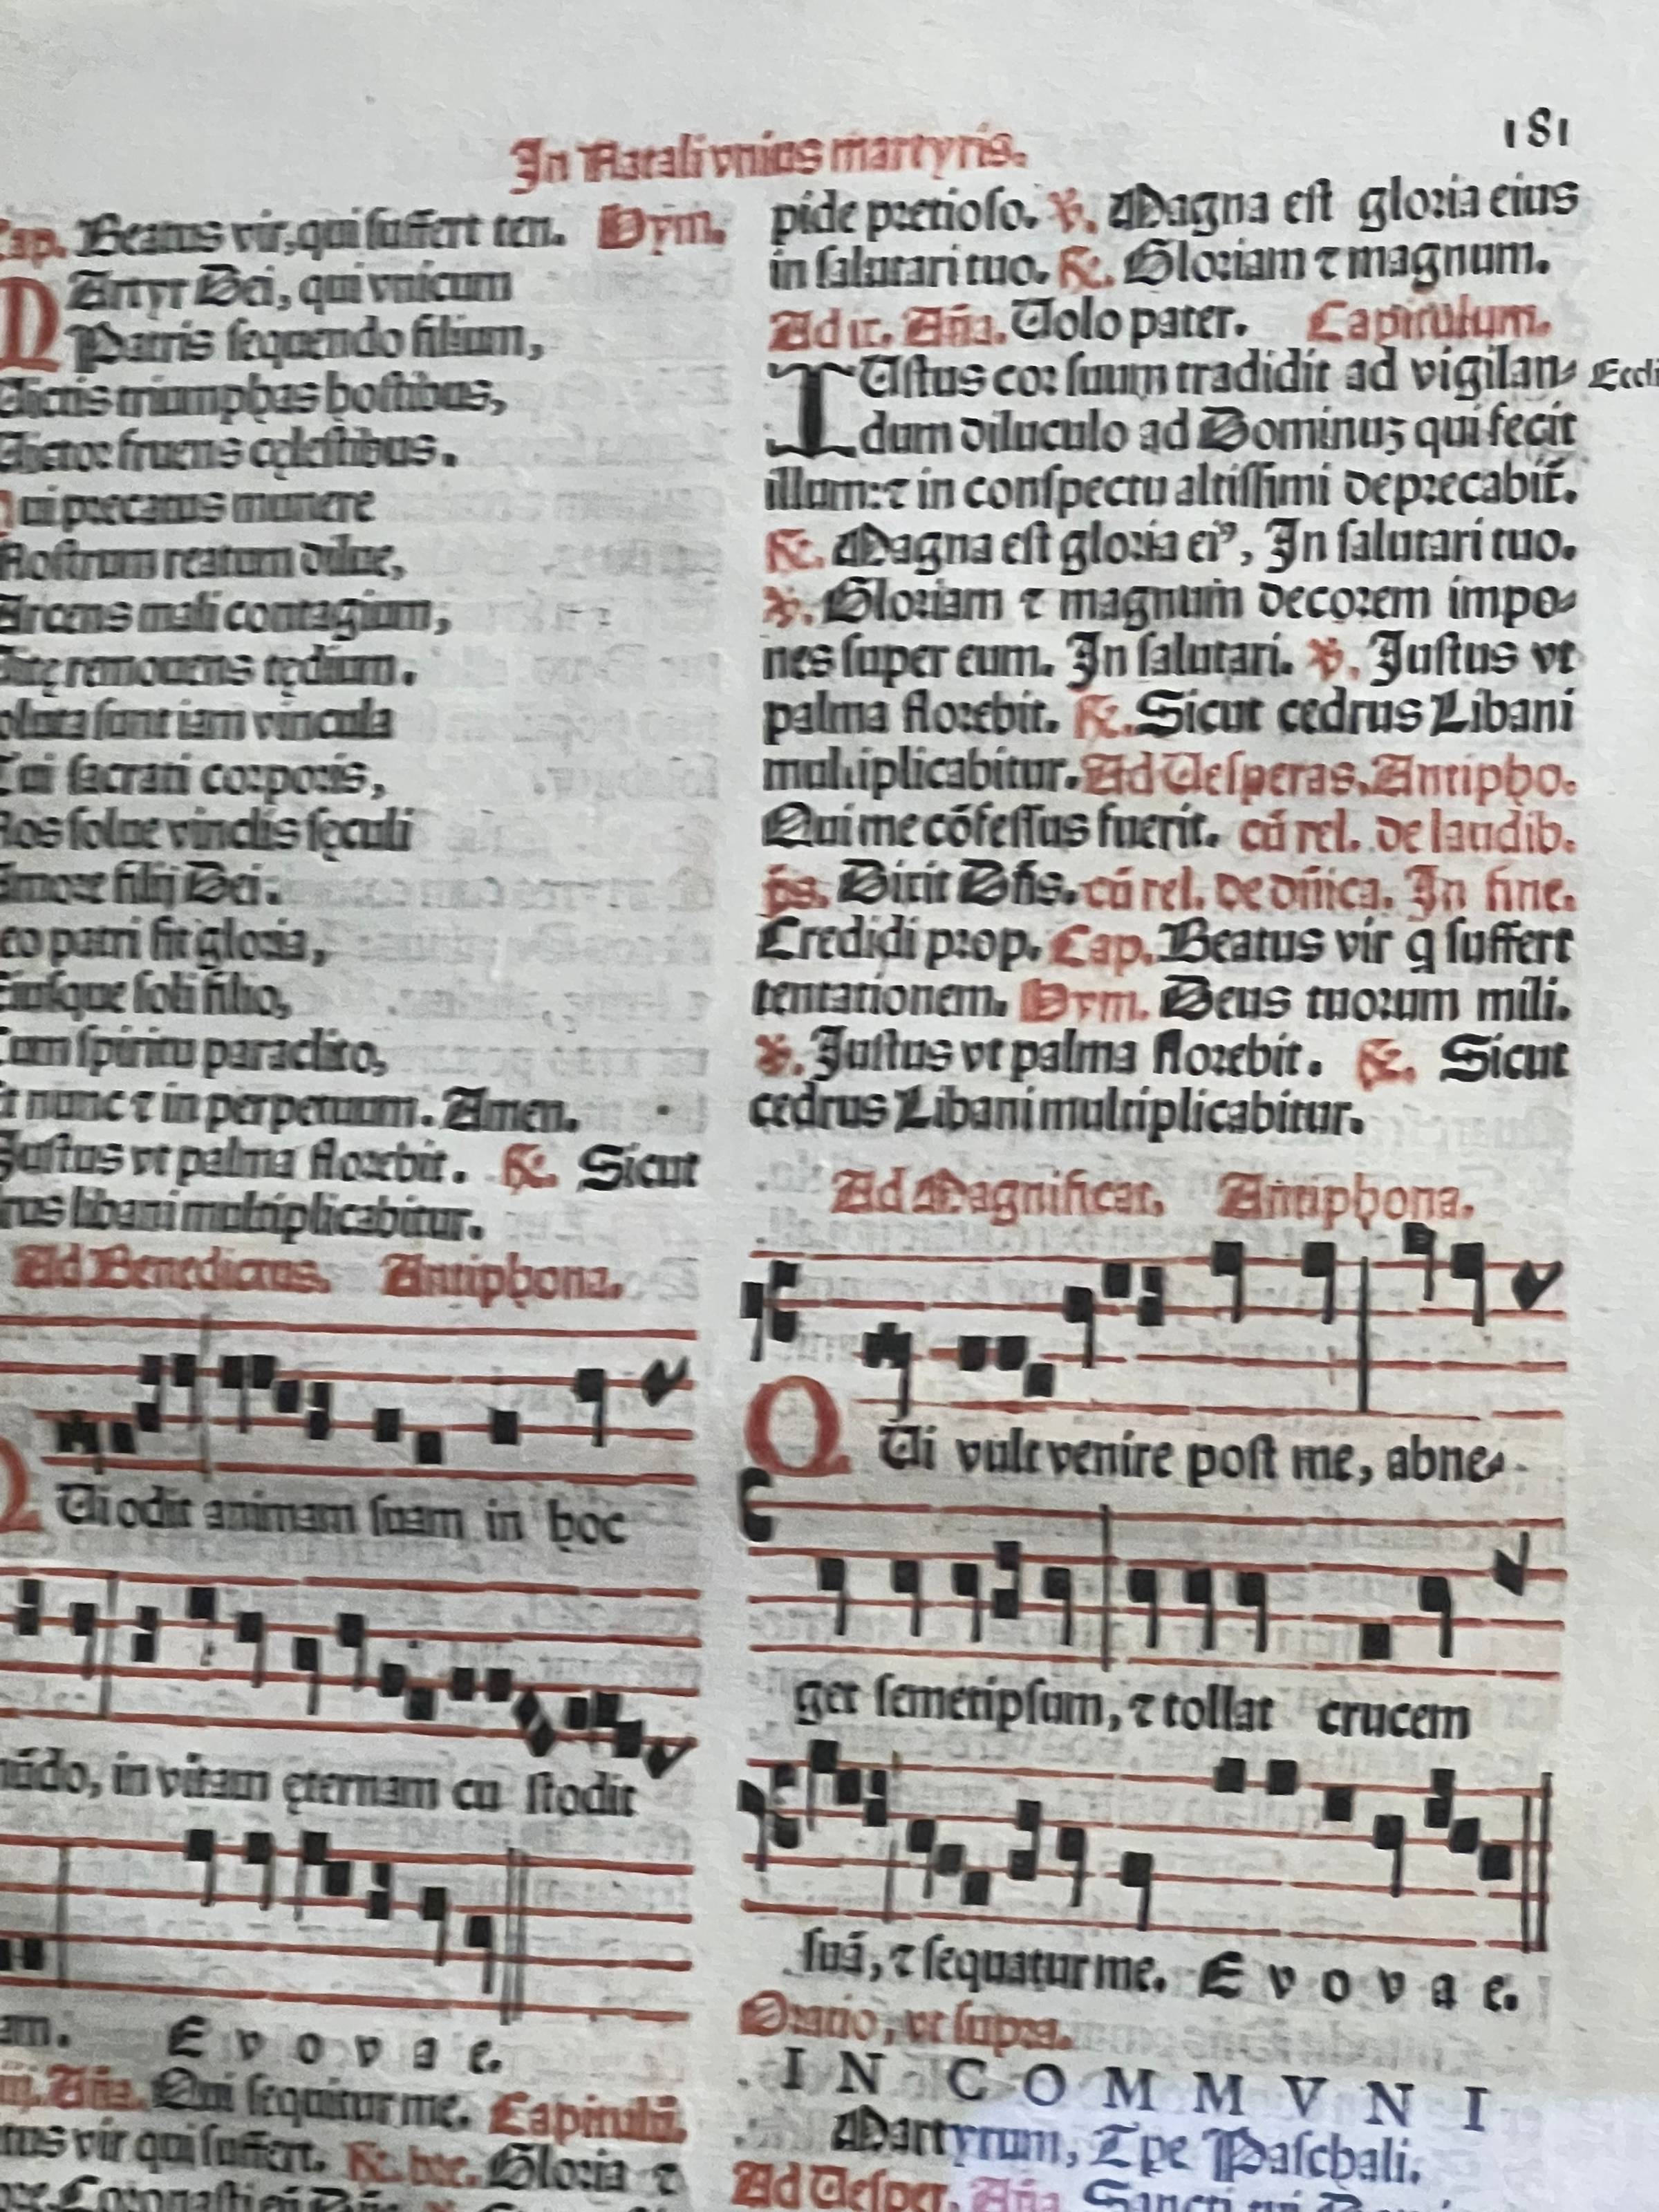 In Natali vnius martyris.
181
Cap. Beatus vir, qui suffert ten. Hym.
MArtyr Dei, qui vnicum
Patris sequendo filium,
Victis triumphas hostibus,
Victor fruens cęlestibus.
Qui precatus munere
Nostrum reatum dilue,
Arcens mali contagium,
Vitę remouens tędium.
soluta sunt iam vincula
Tui sacrati corporis,
Nos solue vinclis sęculi
Amore filij Dei.
Deo patri sit gloria,
Eiusque soli filio,
Cum spiritu paraclito,
Et nunc ⁊ in perpetuum. Amen.
Justus vt palma florebit. ℟. Sicut
drus libani multiplicabitur.
Ad Benedictus. Antiphona.
QUi odit animam suam in hoc
mūdo, in vitam ęternam cu stodit
am. E v o v a e.
Aña. Qui sequitur me. Capitulū.
tus vir qui suffert. ℟. bre. Gloria ⁊
pide pretioso. ℣. Magna est gloria eius
in salutari tuo. ℟. Gloriam ⁊ magnum.
Ad ix. Aña. Volo pater. Capitulum.
IUstus cor suum tradidit ad vigilan- Eccli
dum diluculo ad Dominuʒ qui fecit
illum: ⁊ in conspectu altissimi deprecabit̃.
℟. Magna est gloria eiꝰ, In salutari tuo.
℣. Gloriam ⁊ magnum decorem impo-
nes super eum. In salutari. ℣. Justus vt
palma florebit. ℟. Sicut cedrus Libani
multiplicabitur. Ad Vesperas. Antipho.
Qui me cōfessus fuerit. cū rel. de laudib.
ps. Dixit Dñs. cū rel. de dñica. In fine.
Credidi prop. Cap. Beatus vir q suffert
tentationem. Hym. Deus tuorum mili.
℣. Justus vt palma florebit. ℟. Sicut
cedrus Libani multiplicabitur.
Ad Magnificat. Antiphona.
QUi vult venire post me, abne-
get semetipsum, ⁊ tollat crucem
suā, ⁊ sequatur me. E v o v a e.
Oratio, vt supra.
IN COMMVNI
Martyrum, Tpe Paschali.
Ad Vesper. Aña. Sancti tui